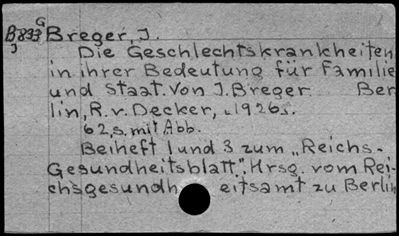 B833G Breger, J.
J
Die Geschlechtskrankheiten
in ihrer Bedeutung für Familie
und Staat. Von J. Breger. Ber
lin, R. v. Decker, 1926.
62 S. mit Abb.
Beiheft 1 und 3 zum „Reichs-
Gesundheitsblatt". Hrsg. vom Rei-
chsgesundh eitsamt zu Berlin